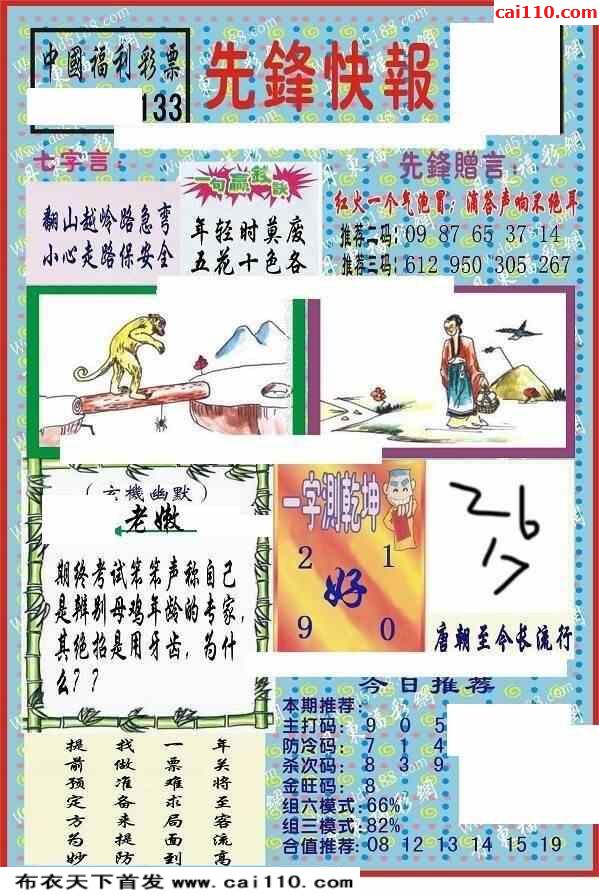 cai110.com
中國福利彩票
133
先鋒快報
七字言：
翻山越岭路急弯
小心走路保安全
一句贏彩訣
年轻时莫废
五花十色各
先鋒贈言：
红火一个气泡冒；滴答声响不绝耳
推荐二码：09 87 65 37 14
推荐三码：612 950 305 267
（玄機幽默）
老嫩
期终考试笨笨声称自己
是辨别母鸡年龄的专家，
其绝招是用牙齿，为什
么？？
一字測乾坤
2 1
好
9 0
26
17
唐朝至今长流行
今日推荐
本期推荐：
主打码：9 0 5
防冷码：7 1 4
杀次码：8 3 9
金旺码：8
组六模式：66%
组三模式：82%
合值推荐：08 12 13 14 15 19
年关将至客流高
一票难求局面到
找做准备来提防
提前预定方为妙
布衣天下首发 www.cai110.com